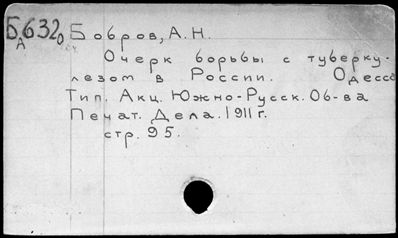 Б632о Бобров, А. Н.
А
Очерк борьбы с туберку-
лезом в России. Одесса
Тип. Акц. Южно-Русск. Об-ва
Печат. Дела. 1911 г.
стр. 95.